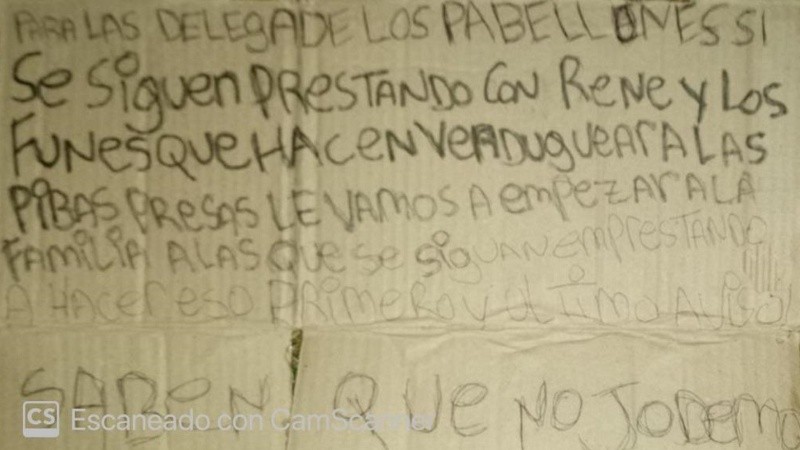 PARA LAS DELEGADE LOS PABELLONES SI
Se Siguen PResTANDO CON ReNe y Los
FuNes QUe HACeN VeRDugueAr A LAS
PiBAS PresAs LE VAMOS A empezAr A LA
FAMiLiA A LAS Que se siguAN emPresTANDO
A HAcer eso PRimeRo y uLTimo AViso!
SABeN QUe NO JoDemo
CS Escaneado con CamScanner